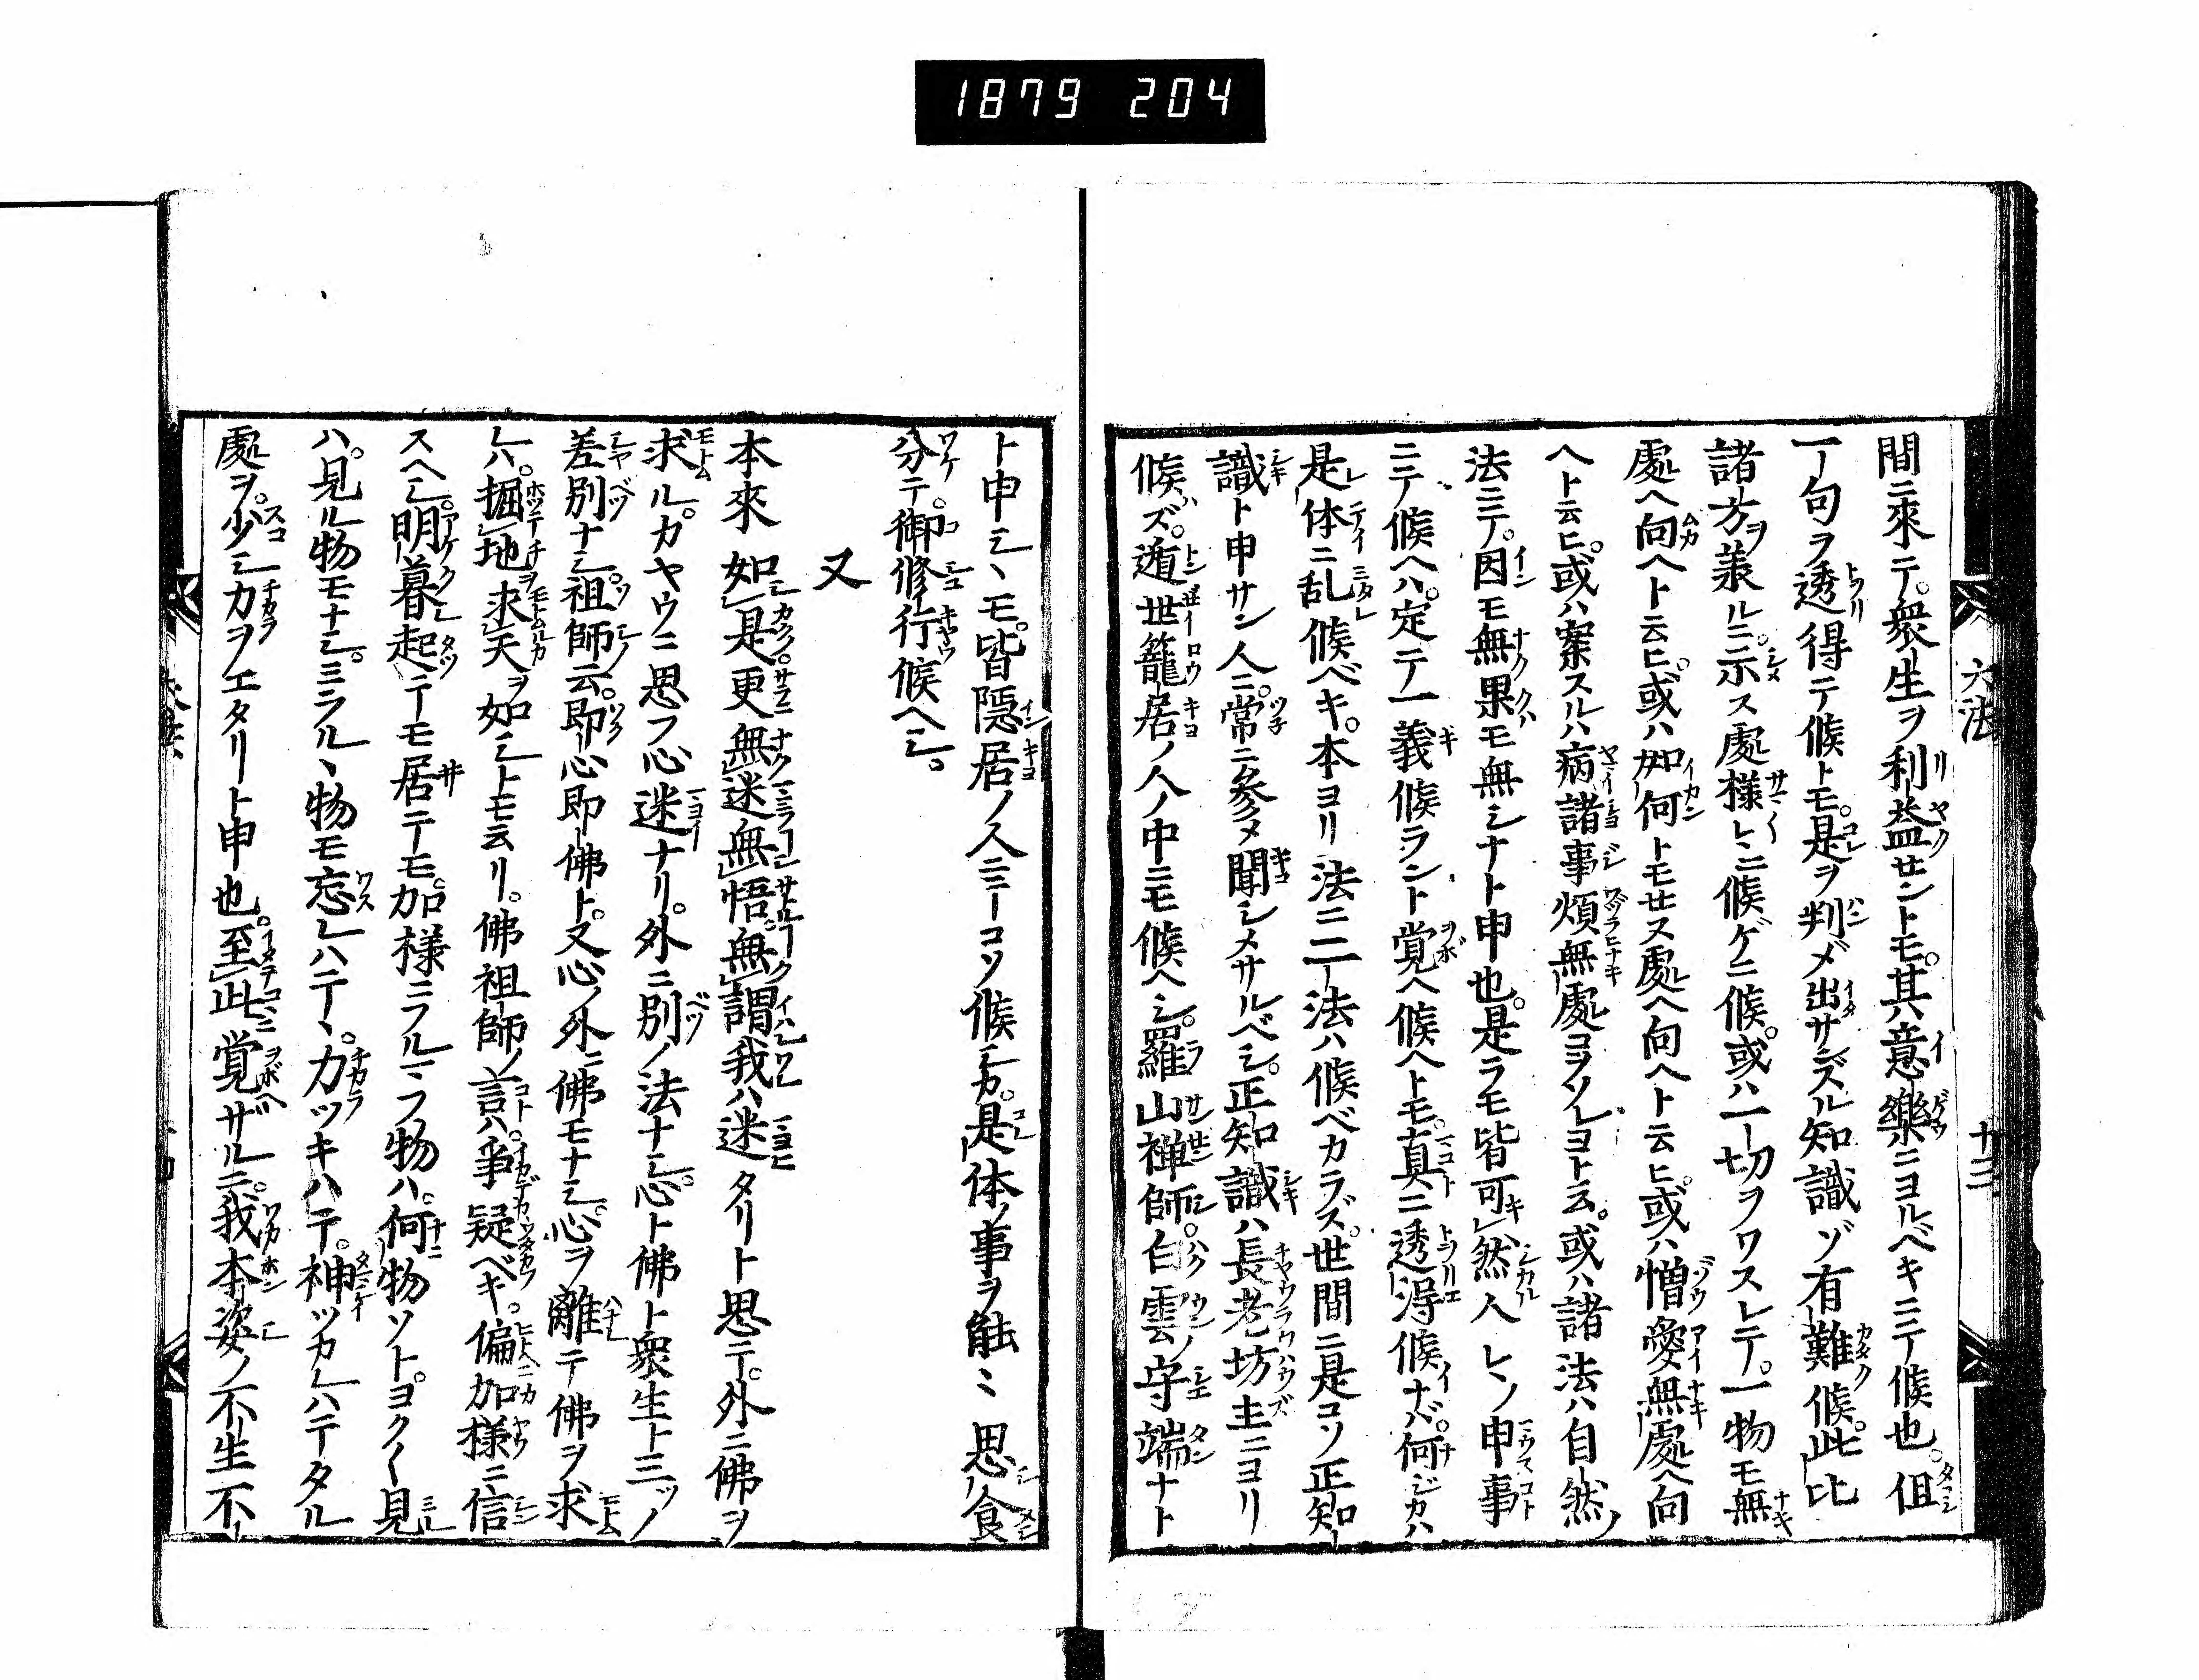 1879 204
六法 十三
間ニ來テ。衆生ヲ利益セントモ。其ハ意樂ニヨルベキニテ候也。但
一句ヲ透得テ候トモ。是ヲ判ジ出サズル知識ゾ有難候。此比
諸方ヲ兼ルニ。示ス處様々ニ候ゲニ候。或ハ一切ヲワスレテ。一物モ無
處ヘ向ヘト云ヒ。或ハ如何トモセヌ處ヘ向ヘト云ヒ。或ハ憎愛無處ヘ向
ヘト云ヒ。或ハ案スルハ病諸事煩無處コヲソレヨト云。或ハ諸法ハ自然ノ
法ニテ。因モ無果モ無シナト申也。是ラモ皆可然人々ノ申事
ニテ候ヘハ。定テ一義候ラント覚ヘ候ヘトモ。真ニ透得候ナバ。何ジカハ
是体ニ乱候ベキ。本ヨリ法ニ二法ハ候ベカラズ。世間ニ是コソ正知
識ト申サン人ニ。常ニ參メ聞シメサルベシ。正知識ハ長老坊主ニヨリ
候ハズ。遁世籠居ノ人ノ中ニモ候ヘシ。羅山禅師。白雲ノ守端ナト
ト申シヽモ。皆隱居ノ人ニテコソ候シカ。是体ノ事ヲ能々思食
分テ。御修行候ヘシ。
又
本來如是更無迷無悟。無謂我ハ迷タリト思テ。外ニ佛ヲ
求ルカヤウニ思フ心迷ナリ。外ニ別ノ法ナシ。心ト佛ト衆生ト三ツノ
差別ナシ。祖師云。即心即佛ト。又心ノ外ニ佛モナシ。心ヲ離テ佛ヲ求
レハ。掘地求天ヲ如シトモ云リ。佛祖師ノ言ハ。爭疑ベキ。偏加様ニ信
スヘシ。明暮起テモ居テモ。加様ニフルマフ物ハ。何物ソト。ヨク〱見
ハ。見ル物モナシ。ミラルヽ物モ忘レハテヽ。力ツキハテ。神ツカレハテタル
處ヲ。少シカヲエタリト申也。至此覚ザルニ。我本姿ノ不生不